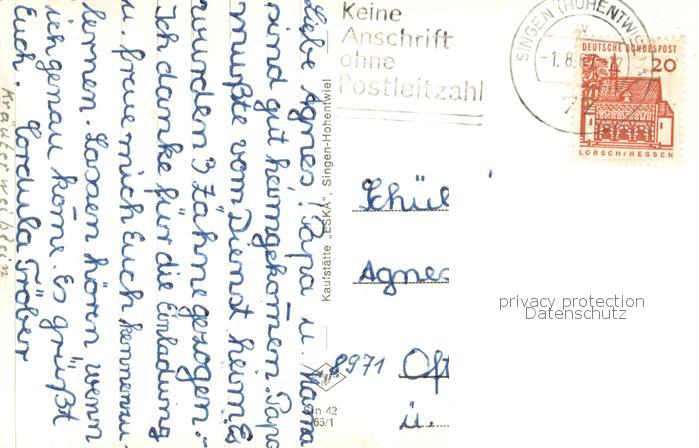 Liebe Agnes! Papa u. Mama
sind gut heimgekommen. Papa
mußte vom Dienst heim. Es
wurden 3 Zähne gezogen.
Ich danke für die Einladung
u. freue mich Euch kennenzu-
lernen. Lassen hören wenn
ich genau köme. Es grüßt
Euch. Cordula Fröber
Kräuterweiblein
Kaufstätte „ESKA", Singen-Hohentwiel
Agfa
42
65/1
Keine
Anschrift
ohne
Postleitzahl
SINGEN (HOHENTW
-1.8.6
DEUTSCHE BUNDESPOST
20
LORSCH/HESSEN
Schül
Agnes
8971 Oft
ü.
privacy protection
Datenschutz